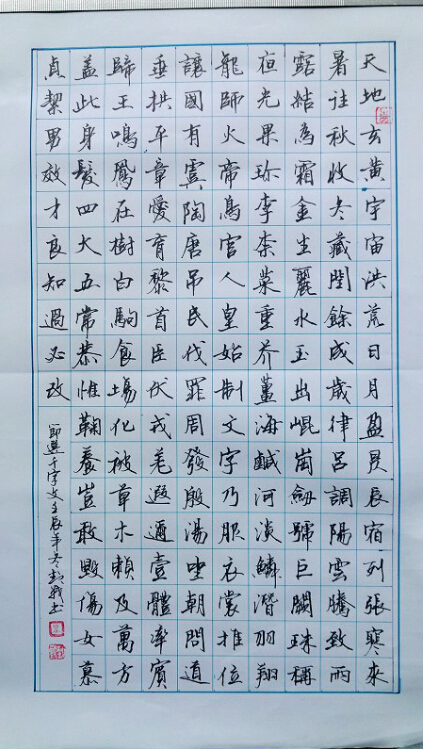 天地玄黄宇宙洪荒日月盈昃辰宿列張寒來
暑往秋收冬藏閏餘成歲律呂調陽雲騰致雨
露結為霜金生麗水玉出崐崗劍號巨闕珠稱
夜光果珍李柰菜重芥薑海鹹河淡鱗潛羽翔
龍師火帝鳥官人皇始制文字乃服衣裳推位
讓國有虞陶唐吊民伐罪周發殷湯坐朝問道
垂拱平章愛育黎首臣伏戎羌遐邇壹體率賓
歸王鳴鳳在樹白駒食場化被草木賴及萬方
蓋此身髮四大五常恭惟鞠養豈敢毀傷女慕
貞絜男效才良知過必改
節選千字文壬辰年冬